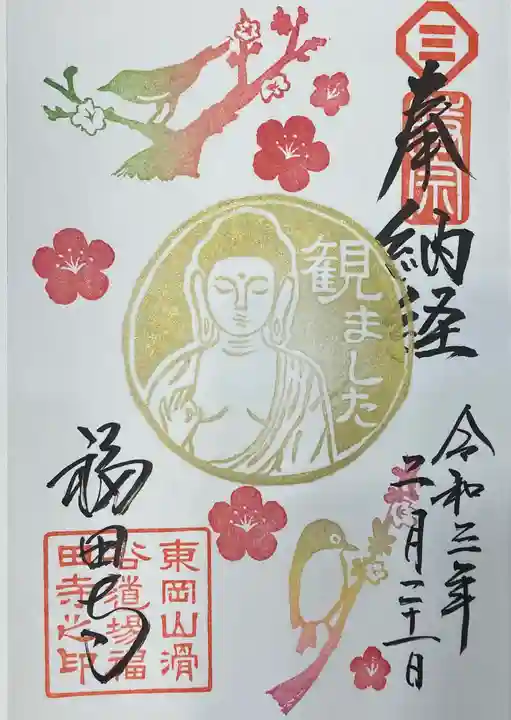 三
奉納経
令和三年
二月二十一日
観ました
福田寺
東岡山滑
谷道場福
田寺之印